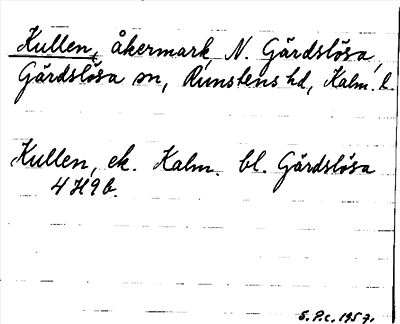 Kullen, åkermark, N. Gärdslösa,
Gärdslösa sn, Runstens hd, Kalm. l.
Kullen, ek. Kalm. bl. Gärdslösa
4 H 9 b.
S.P.c. 1957.